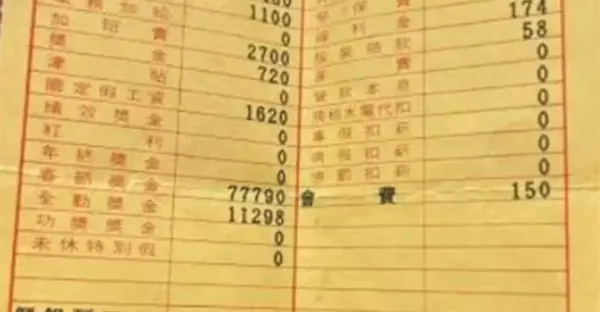 1100
加班費 0
獎金 2700
津貼 720
國定假工資 0
績效獎金 1620
紅利 0
年終獎金 0
春節獎金 0
全勤獎金 77790
功獎獎金 11298
未休特別假 0
0
費 174
福利金 58
0
費 0
0
水電代扣 0
事假扣薪 0
病假扣薪 0
曠職扣薪 0
會費 150